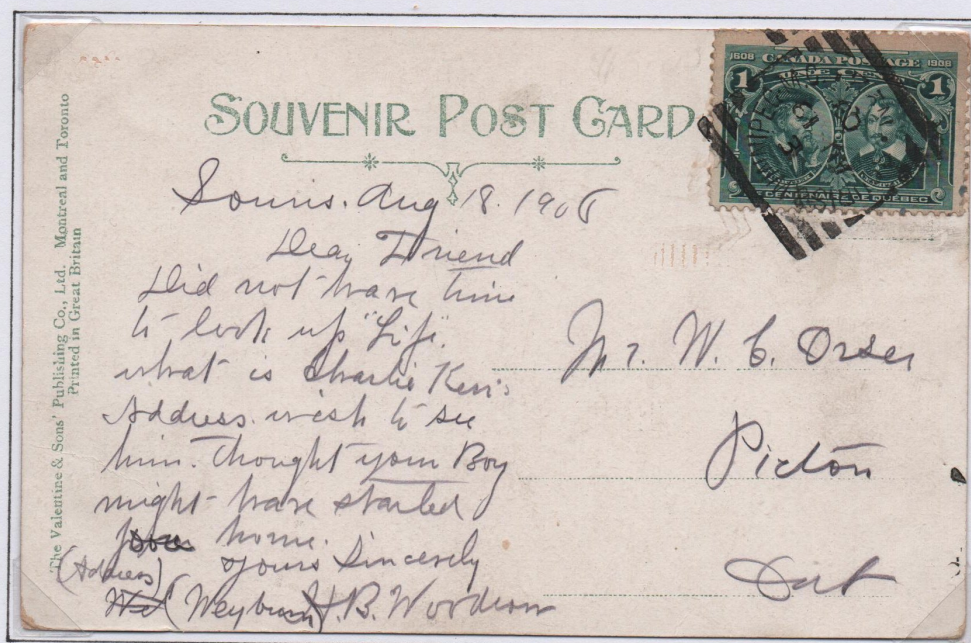 SOUVENIR POST CARD
The Valentine & Sons' Publishing Co., Ltd. Montreal and Toronto
Printed in Great Britain
1608 CANADA POSTAGE 1908
1 ONE CENT 1
IIIe CENTENAIRE DE QUÉBEC
Souris. Aug 18. 1908
Dear Friend
Did not have time
to look up "Life".
what is Charlie
Address. wish to see
him. Thought your Boy
might have started
home.
Yours Sincerely
(Address)
(Weyburn) B.
Mr. W. C. Orser
Picton
Ont